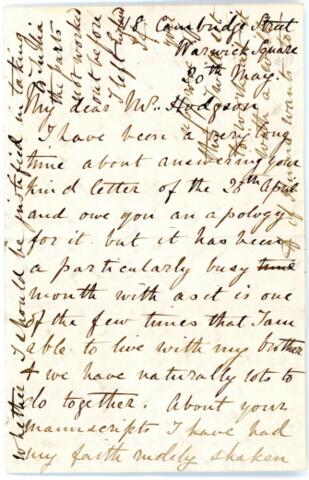 18 Cambridge Street
Warwick Square
30th May.
My dear Mr. Hodgson
I have been a very long
time about answering your
kind letter of the 23th April
and owe you an apology
for it. but it has been
a particularly busy time
month with as it is one
of the few times that I am
able to live with my brother
& we have naturally lots to
do together. About your
manuscripts I have had
my faith rudely shaken
whether I should be justified in taking
to India
the parts
not worked
out before
I left England